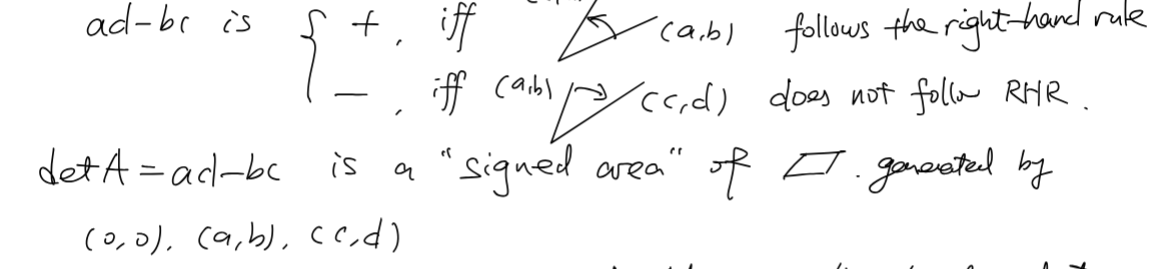 ad-bc is { +, iff (a,b) follows the right-hand rule
-, iff (a,b) (c,d) does not follow RHR.
det A = ad-bc is a "signed area" of ▱. generated by
(0,0), (a,b), (c,d)